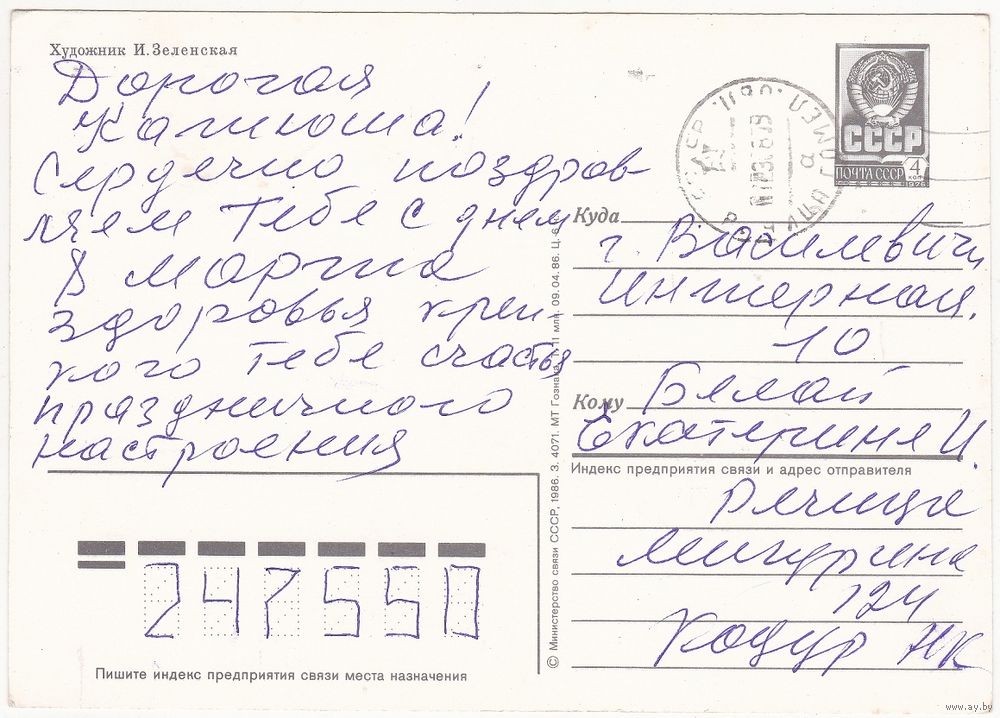 Художник И. Зеленская
Дорогая
Катюша!
Сердечно поздрав-
ляем Тебе с днем
8 Марта
здоровья креп-
кого тебе счастья
праздничного
настроения
СССР
ПОЧТА СССР 4 коп
1976
Куда
г. Василевичи
Интерная.
10
Кому Белай
Екатерине И.
Индекс предприятия связи и адрес отправителя
Речица
Мичурина
124
Коцур НК
247550
Пишите индекс предприятия связи места назначения
© Министерство связи СССР, 1986. З. 4071. МТ Гознака. 11 млн. 09.04.86. Ц. 6 к.
www.ay.by